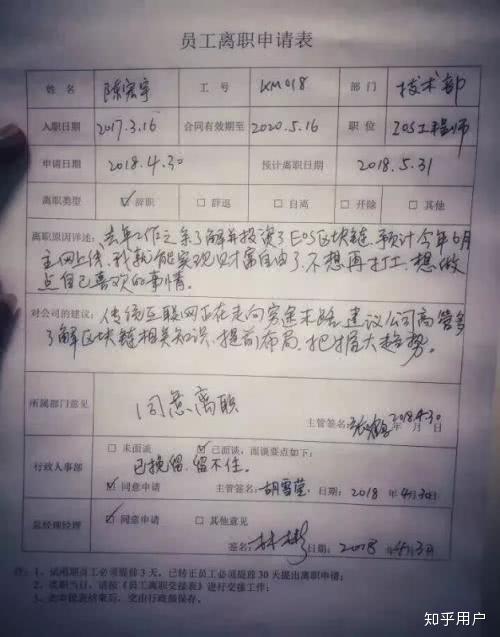 员工离职申请表
姓 名 陈宏宇 工 号 KM018 部 门 技术部
入职日期 2017.3.16 合同有效期至 2020.5.16 职 位 IOS工程师
申请日期 2018.4.30 预计离职日期 2018.5.31
离职类型 ☑辞职 □辞退 □自离 □开除 □其他
离职原因详述: 去年工作之余了解并投资了EOS区块链、预计今年6月
主网上线,我就能实现财富自由了、不想再打工、想做
点自己喜欢的事情。
对公司的建议: 传统互联网正在走向穷途末路、建议公司高管多
了解区块链相关知识、提前布局、把握大趋势。
所属部门意见 同意离职
主管签名: 2018.4.30 年 月 日
行政人事部 □未面谈 ☑已面谈,面谈要点如下:
已挽留、留不住。
☑同意申请 主管签名: 胡雪莹 日期: 2018 年4月30日
总经理经理 ☑同意申请 □其他意见
签名: 林彬 日期: 2018 年4月3日
注: 1、试用期员工必须提前3天,已转正员工必须提前30天提出离职申请;
2、离职当日,请按《员工离职交接表》进行交接工作;
3、此申请表结束后,交由行政部保存。
知乎用户